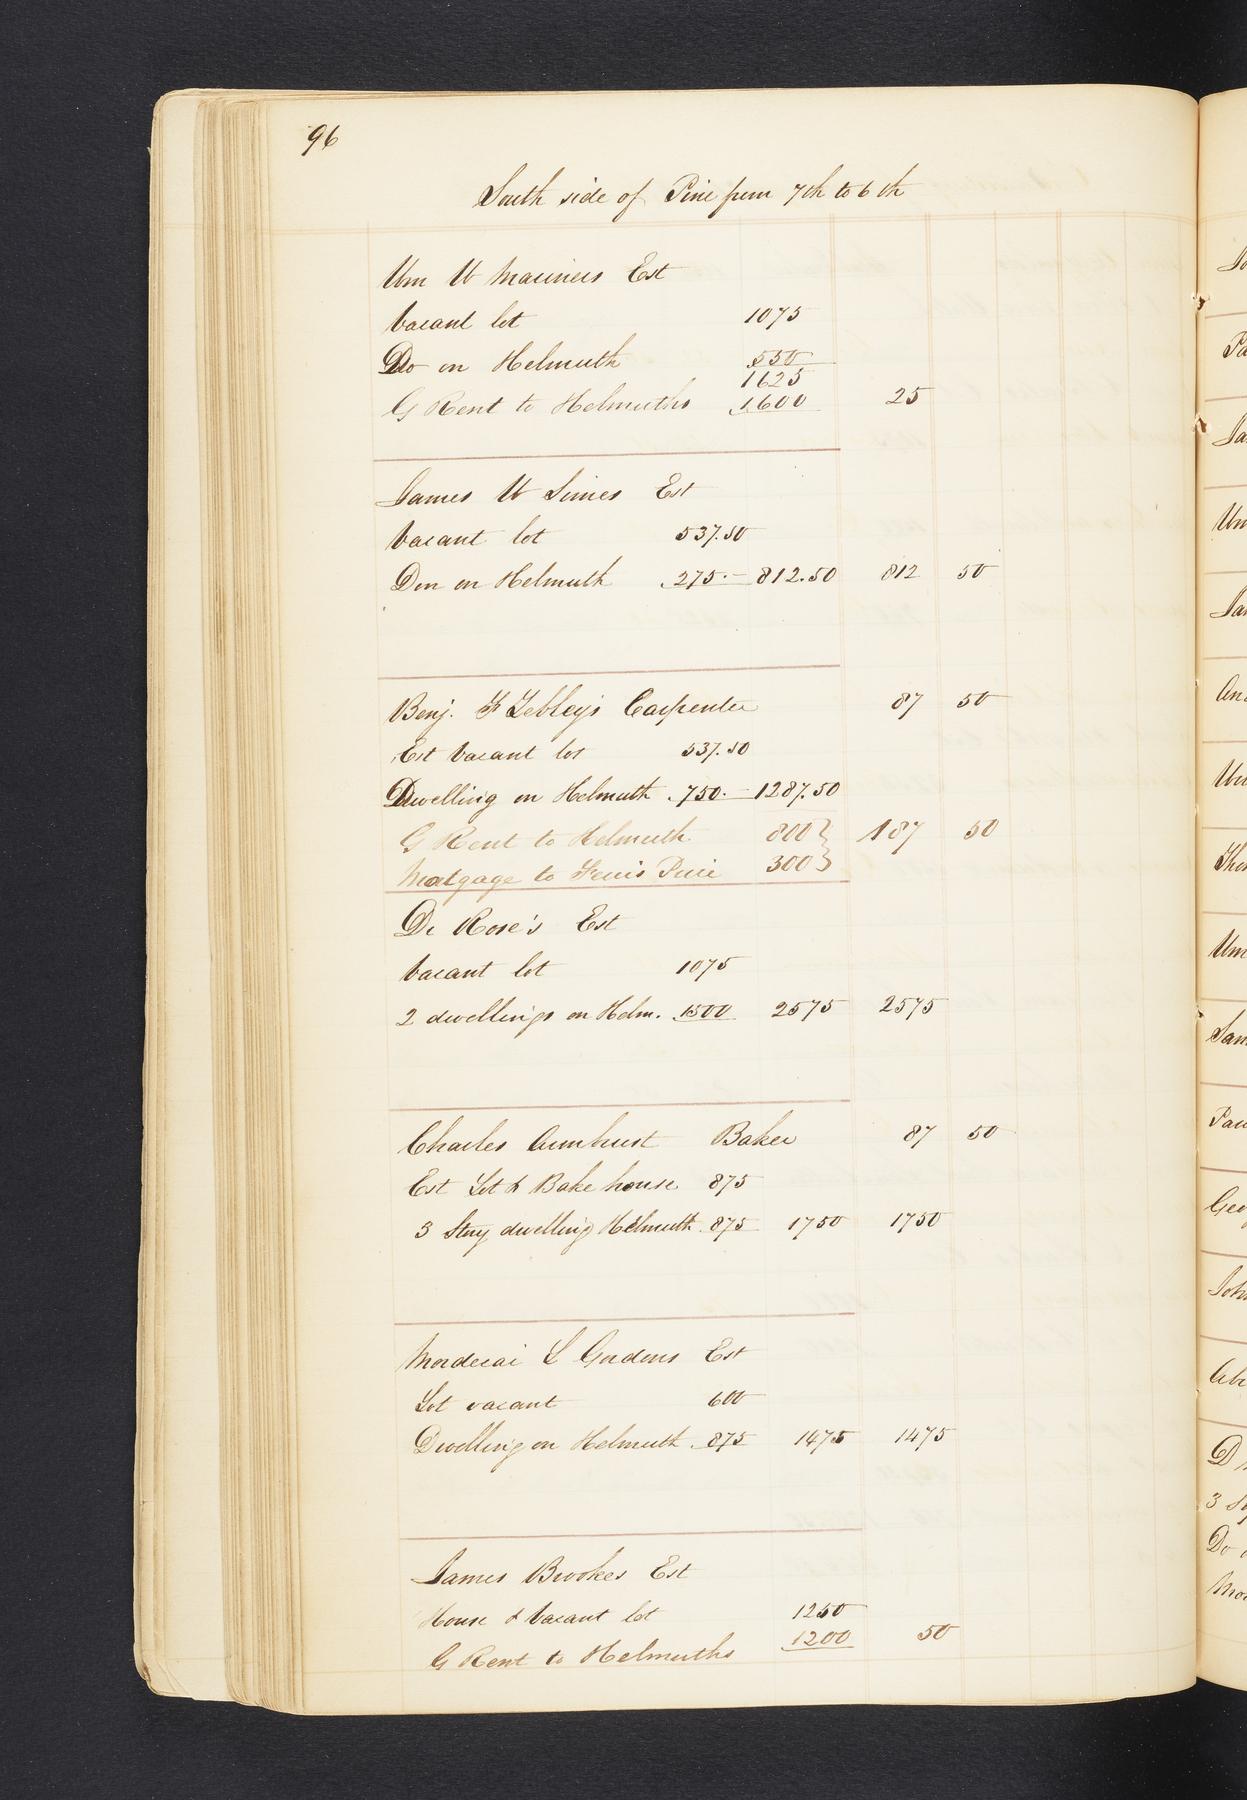 96
South side of Pine from 7th to 6th
Wm W Mariners Est
Vacant lot 1075
Do on Helmuth 550
1625
G Rent to Helmuths 1600 25
James W Simes Est
Vacant lot 537.50
Don on Helmuth 275.– 812.50 812 50
Benj. F Zebleys Carpenter 87 50
Est Vacant lot 537.50
Dwelling on Helmuth 750.– 1287.50
G Rent to Helmuth 800 } 187 50
Mortgage to 300 }
Dr Rose's Est
Vacant lot 1075
2 dwellings on Helm. 1500 2575 2575
Charles Baker 87 50
Est Lot & Bake house 875
3 Story dwelling Helmuth 875 1750 1750
Mordecai L Gordons Est
Lot vacant 600
Dwelling on Helmuth 875 1475 1475
James Brookes Est
House & Vacant lot 1250
G Rent to Helmuths 1200 50
Pa
Ja
Wm
An
Wm
Tho
Wm
Sam
Pau
Geo
John
D
3
Do
Mor